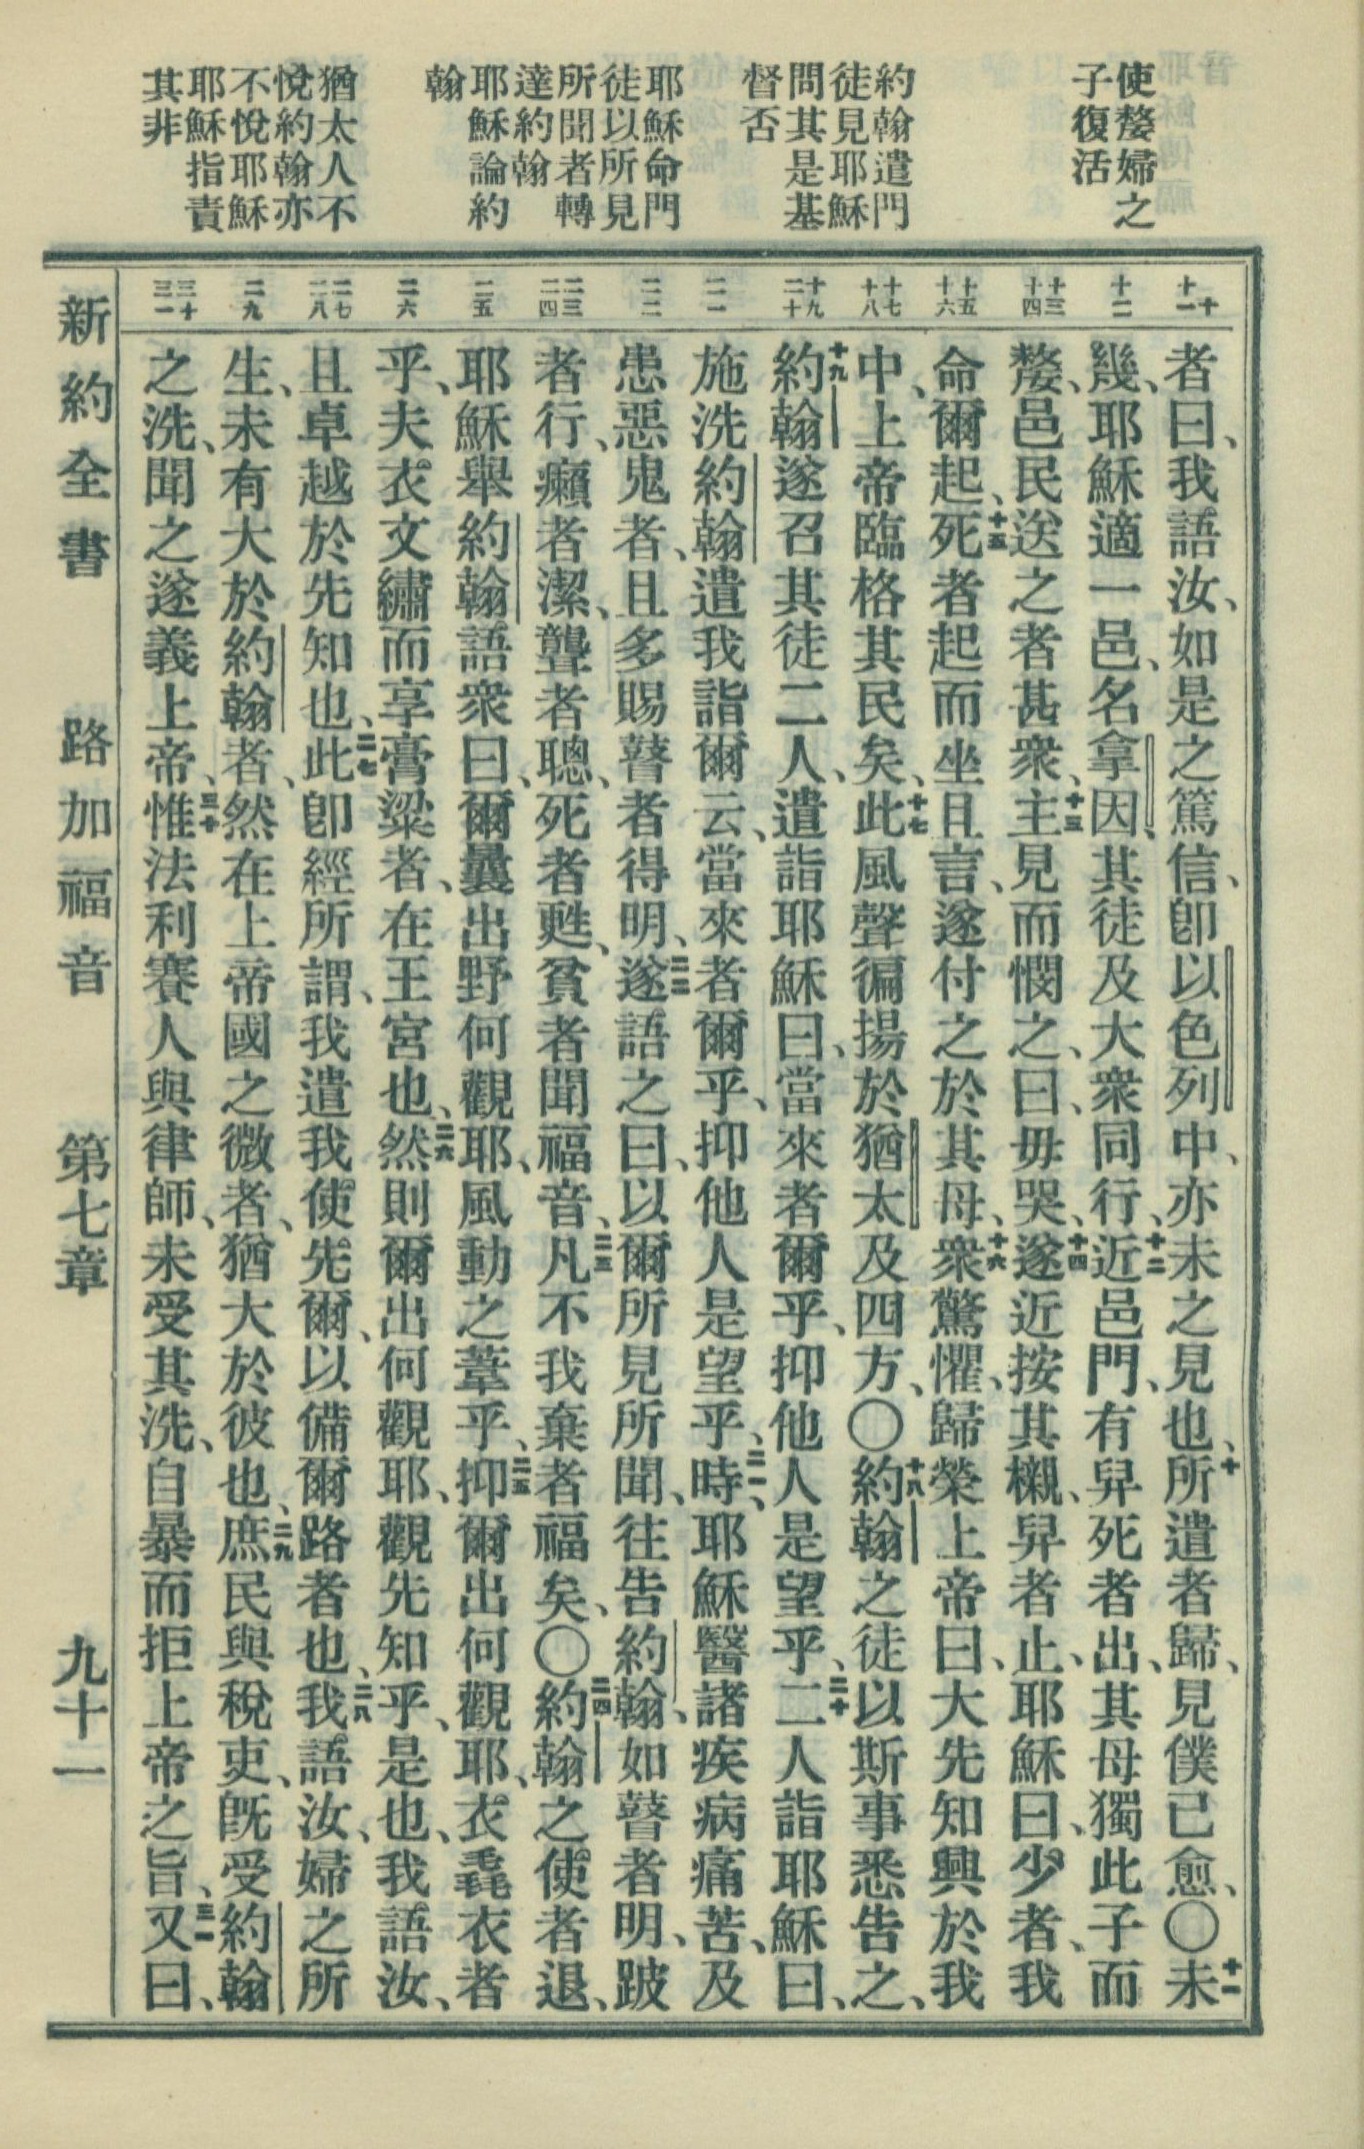 使嫠婦之
子復活
約翰遣門
徒見耶穌
問其是基
督否
耶穌命門
徒以所見
所聞者轉
達約翰
耶穌論約
翰
猶太人不
悅約翰亦
不悅耶穌
耶穌指責
其非
十 十一
十二
十三 十四
十五 十六
十七 十八
十九 二十
二一
二二
二三 二四
二五
二六
二七 二八
二九
三十 三一
者曰、我語汝、如是之篤信、卽以色列中、亦未之見也、十所遣者歸、見僕已愈、〇十一未
幾、耶穌適一邑、名拿因、其徒及大衆同行、十二近邑門、有舁死者出、其母獨此子而
嫠、邑民送之者甚衆、十三主見而憫之、曰、毋哭、十四遂近按其櫬、舁者止、耶穌曰、少者、我
命爾起、十五死者起而坐且言、遂付之於其母、十六衆驚懼、歸榮上帝曰、大先知興於我
中、上帝臨格其民矣、十七此風聲徧揚於猶太及四方、〇十八約翰之徒以斯事悉告之、
十九約翰遂召其徒二人、遣詣耶穌曰、當來者爾乎、抑他人是望乎、二十二人詣耶穌曰、
施洗約翰遣我詣爾云、當來者爾乎、抑他人是望乎、二一時、耶穌醫諸疾病痛苦、及
患惡鬼者、且多賜瞽者得明、二二遂語之曰、以爾所見所聞、往告約翰、如瞽者明、跛
者行、癩者潔、聾者聰、死者甦、貧者聞福音、二三凡不我棄者福矣、〇二四約翰之使者退、
耶穌舉約翰語衆曰、爾曩出野何觀耶、風動之葦乎、二五抑爾出何觀耶、衣毳衣者
乎、夫衣文繡而享膏粱者、在王宮也、二六然則爾出何觀耶、觀先知乎、是也、我語汝、
且卓越於先知也、二七此卽經所謂、我遣我使先爾、以備爾路者也、二八我語汝、婦之所
生、未有大於約翰者、然在上帝國之微者、猶大於彼也、二九庶民與稅吏、旣受約翰
之洗、聞之遂義上帝、三十惟法利賽人與律師、未受其洗、自暴而拒上帝之旨、三一又曰、
新約全書 路加福音 第七章 九十一